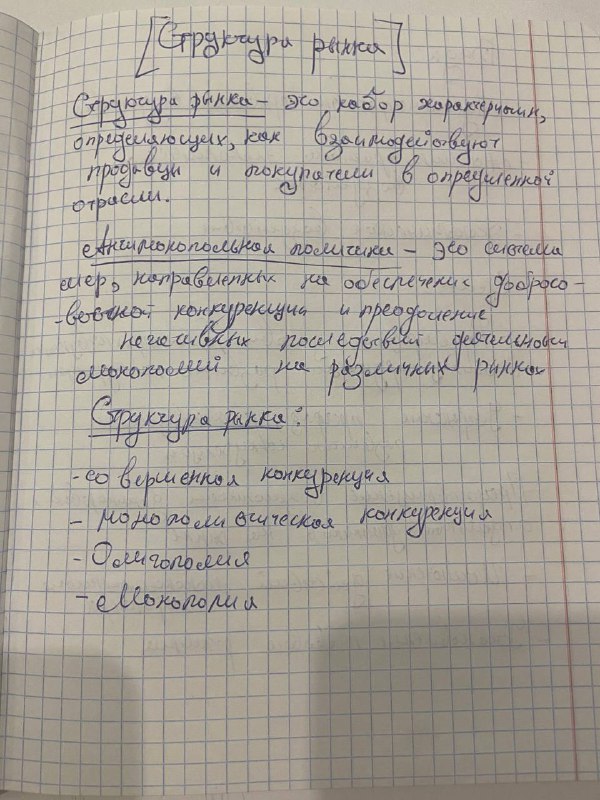 [Структура рынка]
Структура рынка – это набор характеристик,
определяющих, как взаимодействуют
продавцы и покупатели в определенной
отрасли.
Антимонопольная политика – это система
мер, направленных на обеспечение добросо-
-вестной конкуренции и преодоление
негативных последствий деятельности
монополий на различных рынках
Структура рынка:
- совершенная конкуренция
- монополистическая конкуренция
- Олигополия
- Монополия